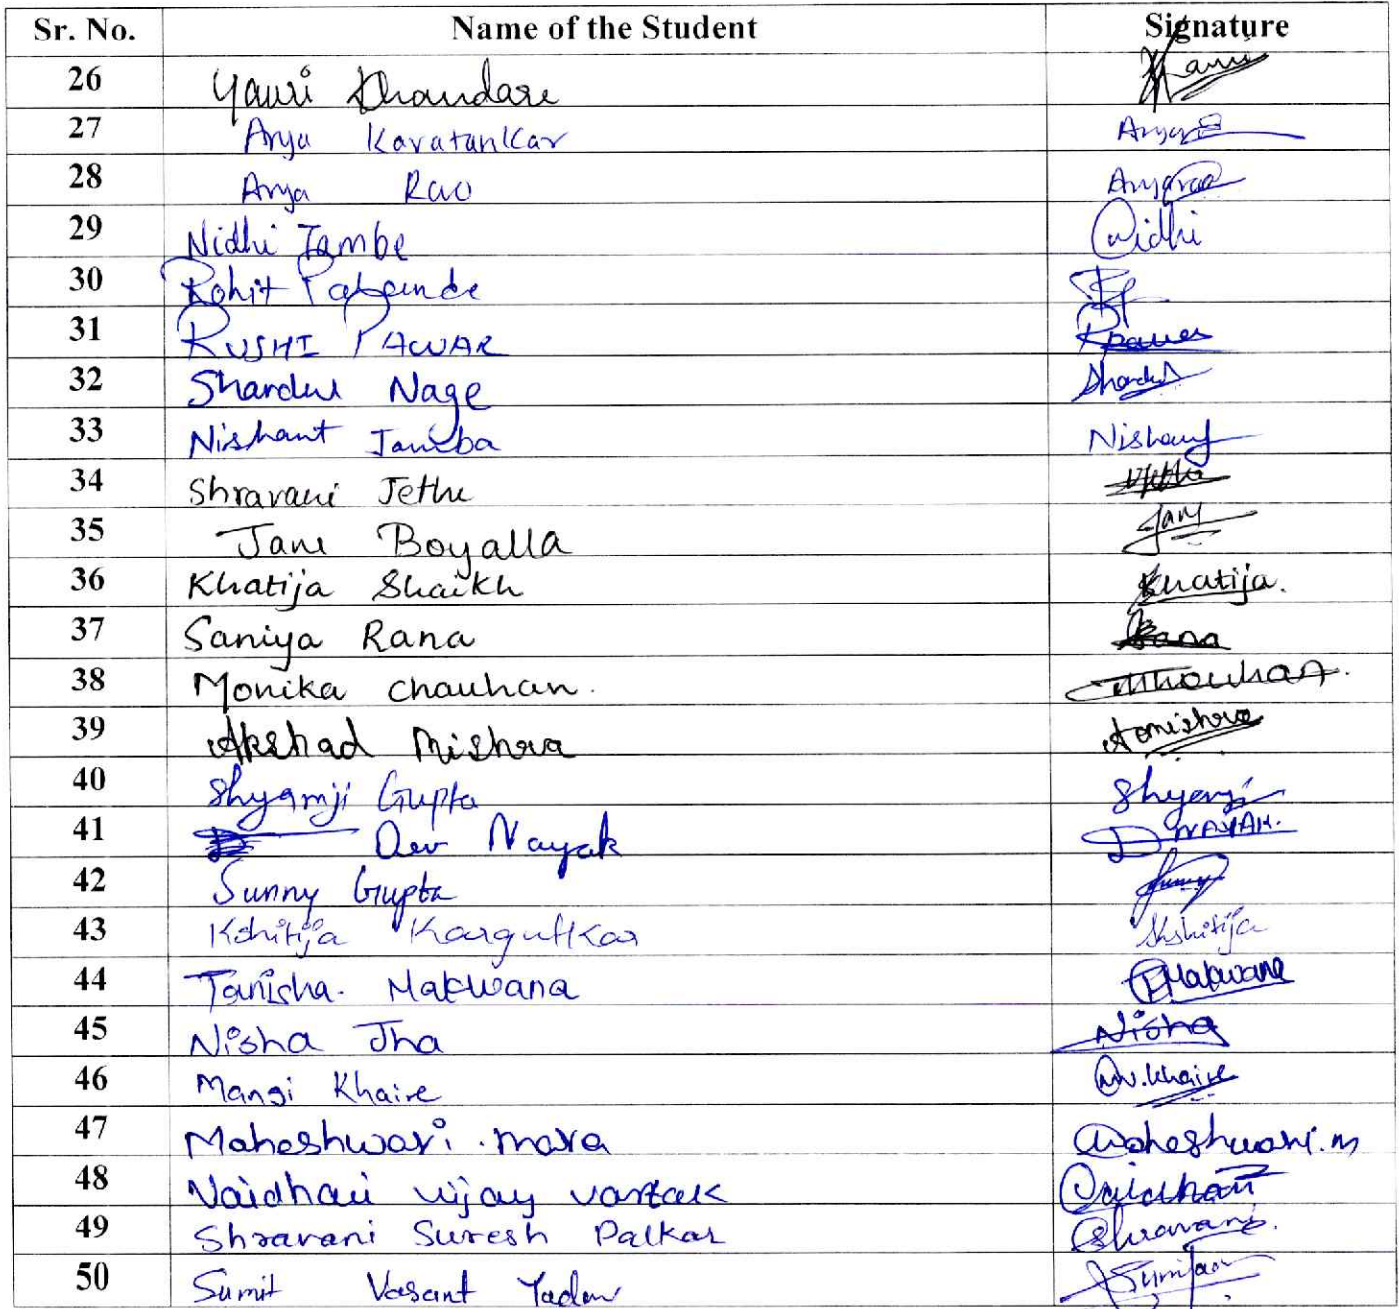 Sr. No. Name of the Student Signature
26 Yauri Dhandare
27 Arya Karatankar Arya
28 Arya Rao Aryarao
29 Nidhi Tambe Nidhi
30 Rohit
31 RUSHI PAWAR Rpawar
32 Shardul Nage Shardul
33 Nishant Nishant
34 Shravani Jethe
35 Jane Boyalla Jane
36 Khatija Shaikh Khatija.
37 Saniya Rana Rana
38 Monika Chauhan. MChauhan.
39 Akshad Mishra Amishra
40 Shyamji Gupta Shyamji
41 Dev Nayak D NAYAK.
42 Sunny Gupta Sunny
43 Kshitija Kargutkar Kshitija
44 Tanisha. Makwana TMakwana
45 Nisha Jha Nisha
46 Mansi Khaire M.V.Khaire
47 Maheshwari. mara Maheshwari.m
48 Vaidhavi vijay vartak Vaidhavi
49 Shravani Suresh Palkar Shravani.
50 Sumit Vasant Yadav